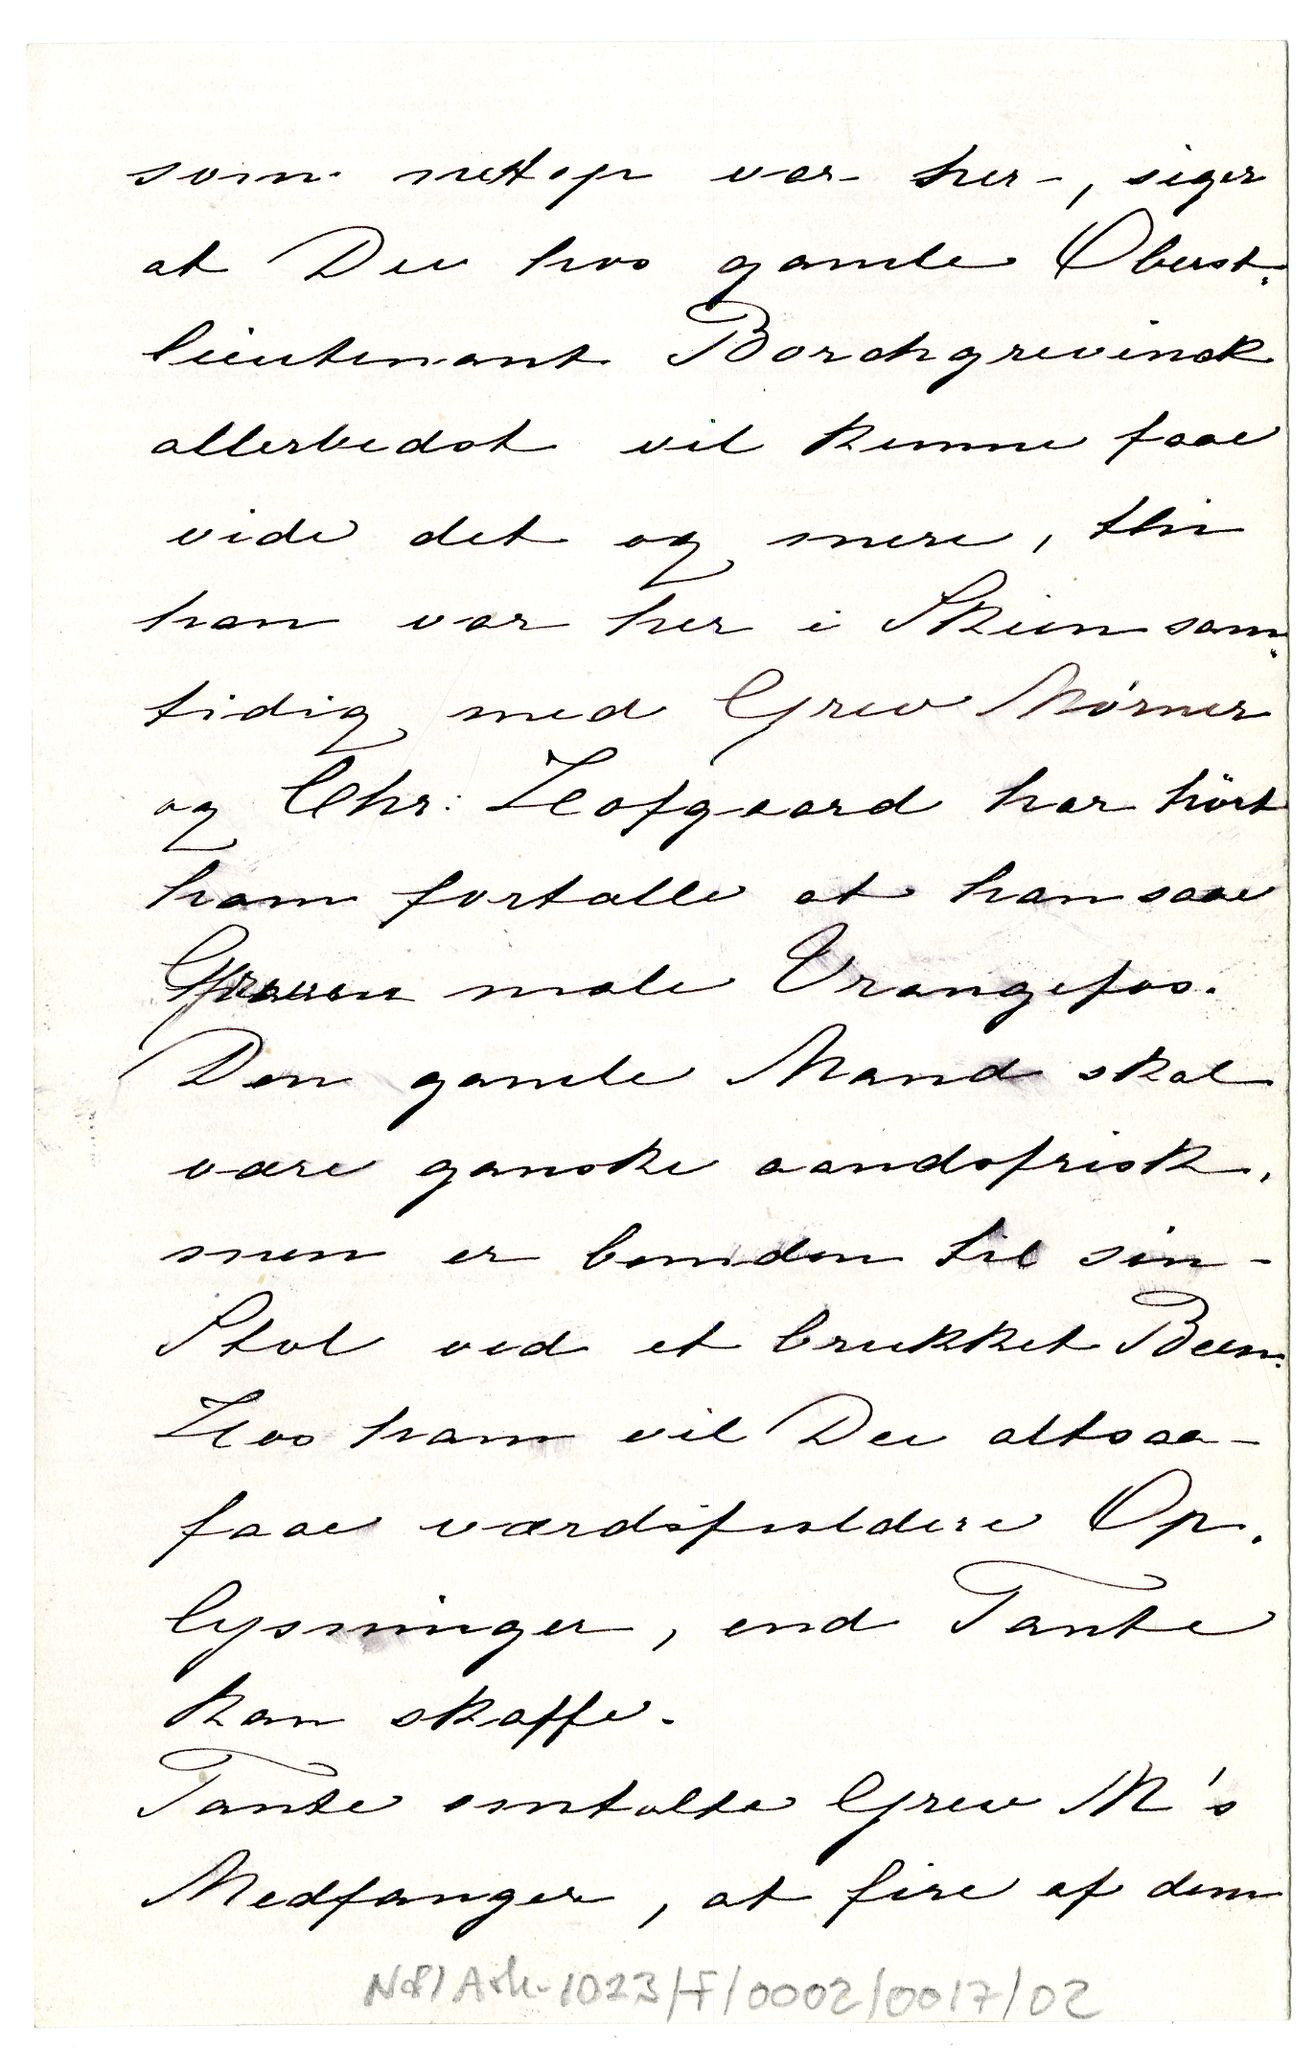 som nettop var her, siger
at De hos gamle Oberst-
lieutenant Borchgrevinck
allerbedst vil kunne faae
vide det og mere, thi
han var her i Skien sam-
tidig med Grev Mörner
og Chr: Hofgaard har hört
ham fortælle at han saae
Greven male Vrangefos.
Den gamle Mand skal
være ganske aandsfrisk,
men er bunden til sin
Stol ved et brukket Been.
Hos ham vil De altsaa
faae værdifuldere Op-
lysninger, end Tante
kan skaffe.
Tante omtalte Grev M's
Medfanger, at fire af dem
N81 Ark-1023/F/0002/0017/02